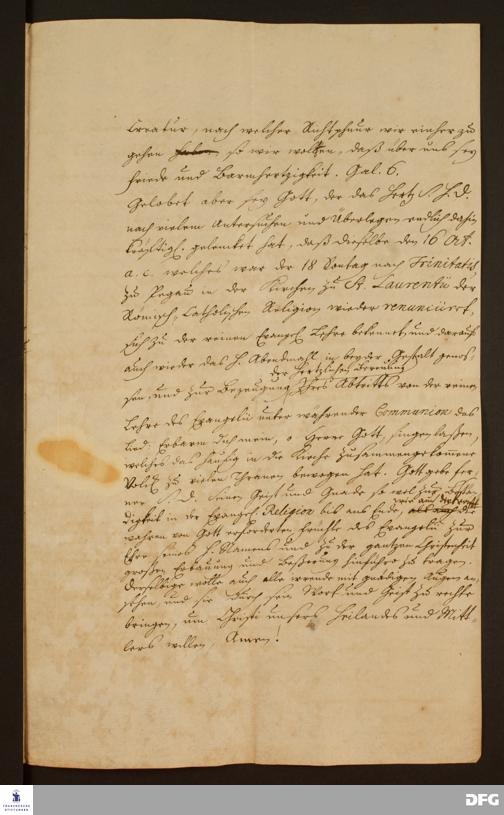 Creatur, nach welcher Richtschnur wir einher zu
gehen haben so wir wollen, daß über uns sey
Friede und Barmhertzigkeit. Gal. 6.
Gelobet aber sey Gott, der das Hertz S. H. D.
nach vielem Untersuchen und Überlegen endlich dahin
kräfftigl. gelencket hat, daß derselbe den 16 Oct.
a. c. welches war der 18 Sontag nach Trinitatis
zu Pegau in der Kirchen zu St. Laurentii der
Römisch-Catholischen Religion wieder renunciiret,
sich zu der reinen Evangel. Lehre bekennet, und darauf
auch wieder das H. Abendmahl in beyder Gestalt genos-
der hertzlichen Bereuung
sen, und zur Bezeugung Ihres Abtritts von der reinen
Lehre des Evangelii unter währender Communion das
Lied: Erbarm dich mein, o Herre Gott, singen lassen,
welches das häuffig in die Kirche zusammengekommene
Volck zu vielen Thränen bewogen hat. Gott gebe fer-
ner S. D. seinen Geist und Gnade so wol zur Bestän-
digkeit in der Evangel. Religion bis ans Ende, als auch
wahren von Gott erforderten Früchte des Evangelii zur
Ehre seines H. Namens und zu der gantzen Christenheit
grossen Erbauung und Besserung hinführo zu tragen.
Derselbige wolle auch alle irrende mit gnädigen Augen an-
sehen, und sie durch sein Wort und Geist zu rechte
bringen, um Christi unsers Heilandes und Mitt-
lers willen, Amen!
FRANCKESCHE
STIFTUNGEN
DFG